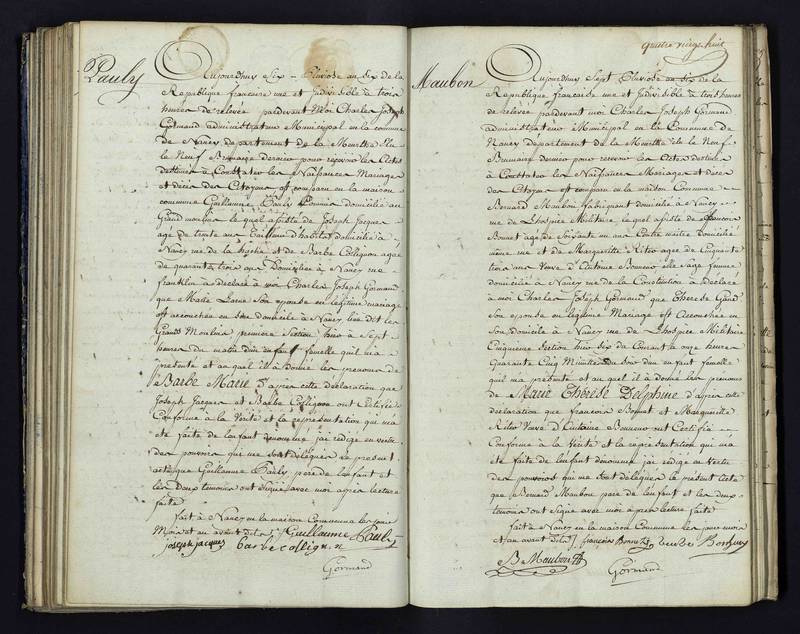 Pauly
Aujourdhuy Six Pluviose an Six de la
République francaise une et Indivisible à trois
heures de relevée pardevant Moi Charles Joseph
Gormand administrateur Municipal de la commune
de Nancy département de la Meurthe Elu
le Neuf Brumaire dernier pour recevoir les Actes
destinés à Constater les Naissances Mariages
et décès des Citoyens est comparu en la maison
commune Guillaume Pauly domicilié au
Grand moulin lequel assisté de Joseph Jacques
agé de trente ans Tailleur d'habits domicilié à
Nancy rue de la et de Barbe Collignon agée
de quarante trois ans Domiciliée à Nancy rue
franklin a déclaré à moi Charles Joseph Gormand
que Marie Son épouse en légitime mariage
est accouchée en Son domicile à Nancy lieu dit les
Grands Moulins première Section hier à Sept
heures du matin d'un Enfant femelle qu'il m'a
présenté et auquel il à donné les prénoms de
Barbe Marie D'après cette déclaration que
Joseph Jacques et Barbe Collignon ont Certifiée
Conforme à la Vérité et la représentation qui m'a
été faite de l'enfant dénommé j'ai rédigé en vertu
des pouvoirs qui me sont délégués le présent
acte que Guillaume Pauly père de l'enfant et
les Deux témoins ont signé avec moi après lecture
faite
fait à Nancy en la maison Commune les jour
Mois et an avant dits Guillaume Pauly
joseph jacques barbe collignon
Gormand
quatre vingt huit
Maubon
Aujourdhuy Sept Pluviose an Six de la
République francaise une et Indivisible à trois heures
de relevée pardevant moi Charles Joseph Gormand
administrateur Municipal en la Commune de
Nancy Département de la Meurthe Elu le Neuf
Brumaire dernier pour recevoir les Actes destinés
à Constater les Naissances Mariages et décès
des Citoyens est comparu en la maison Commune
Bernard Maubon fabriquant domicilié à Nancy
rue de Lhospice Militaire lequel assisté de francois
Bonnet agé de Soixante ans Domicilié
même rue et de Marguerite agée de Cinquante
trois ans Veuve d'Antoine Sage femme
domiciliée à Nancy rue de la Constitution à Déclaré
à moi Charles Joseph Gormand que Therese
Son épouse en légitime Mariage est Accouchée en
Son domicile à Nancy rue de Lhospice Militaire
Cinquieme Section hier Six du Courant à onze heures
Quarante Cinq Minutes du Soir d'un enfant femelle
qu'il m'a présenté et auquel il à donné les prénoms
de Marie Thérèse Delphine d'après cette
déclaration que francois Bonnet et Marguerite
Veuve d'Antoine ont Certifié
Conforme à la Vérité et la représentation qui m'a
été faite de l'enfant dénommé j'ai rédigé en Vertu
des pouvoirs qui me sont délégués le présent Acte
que Bernard Maubon père de l'enfant et les deux
témoins ont signé avec moi après lecture faite
fait à Nancy en la maison Commune les jour mois
et an avant dits françois Bonnet
B Maubon
Gormand